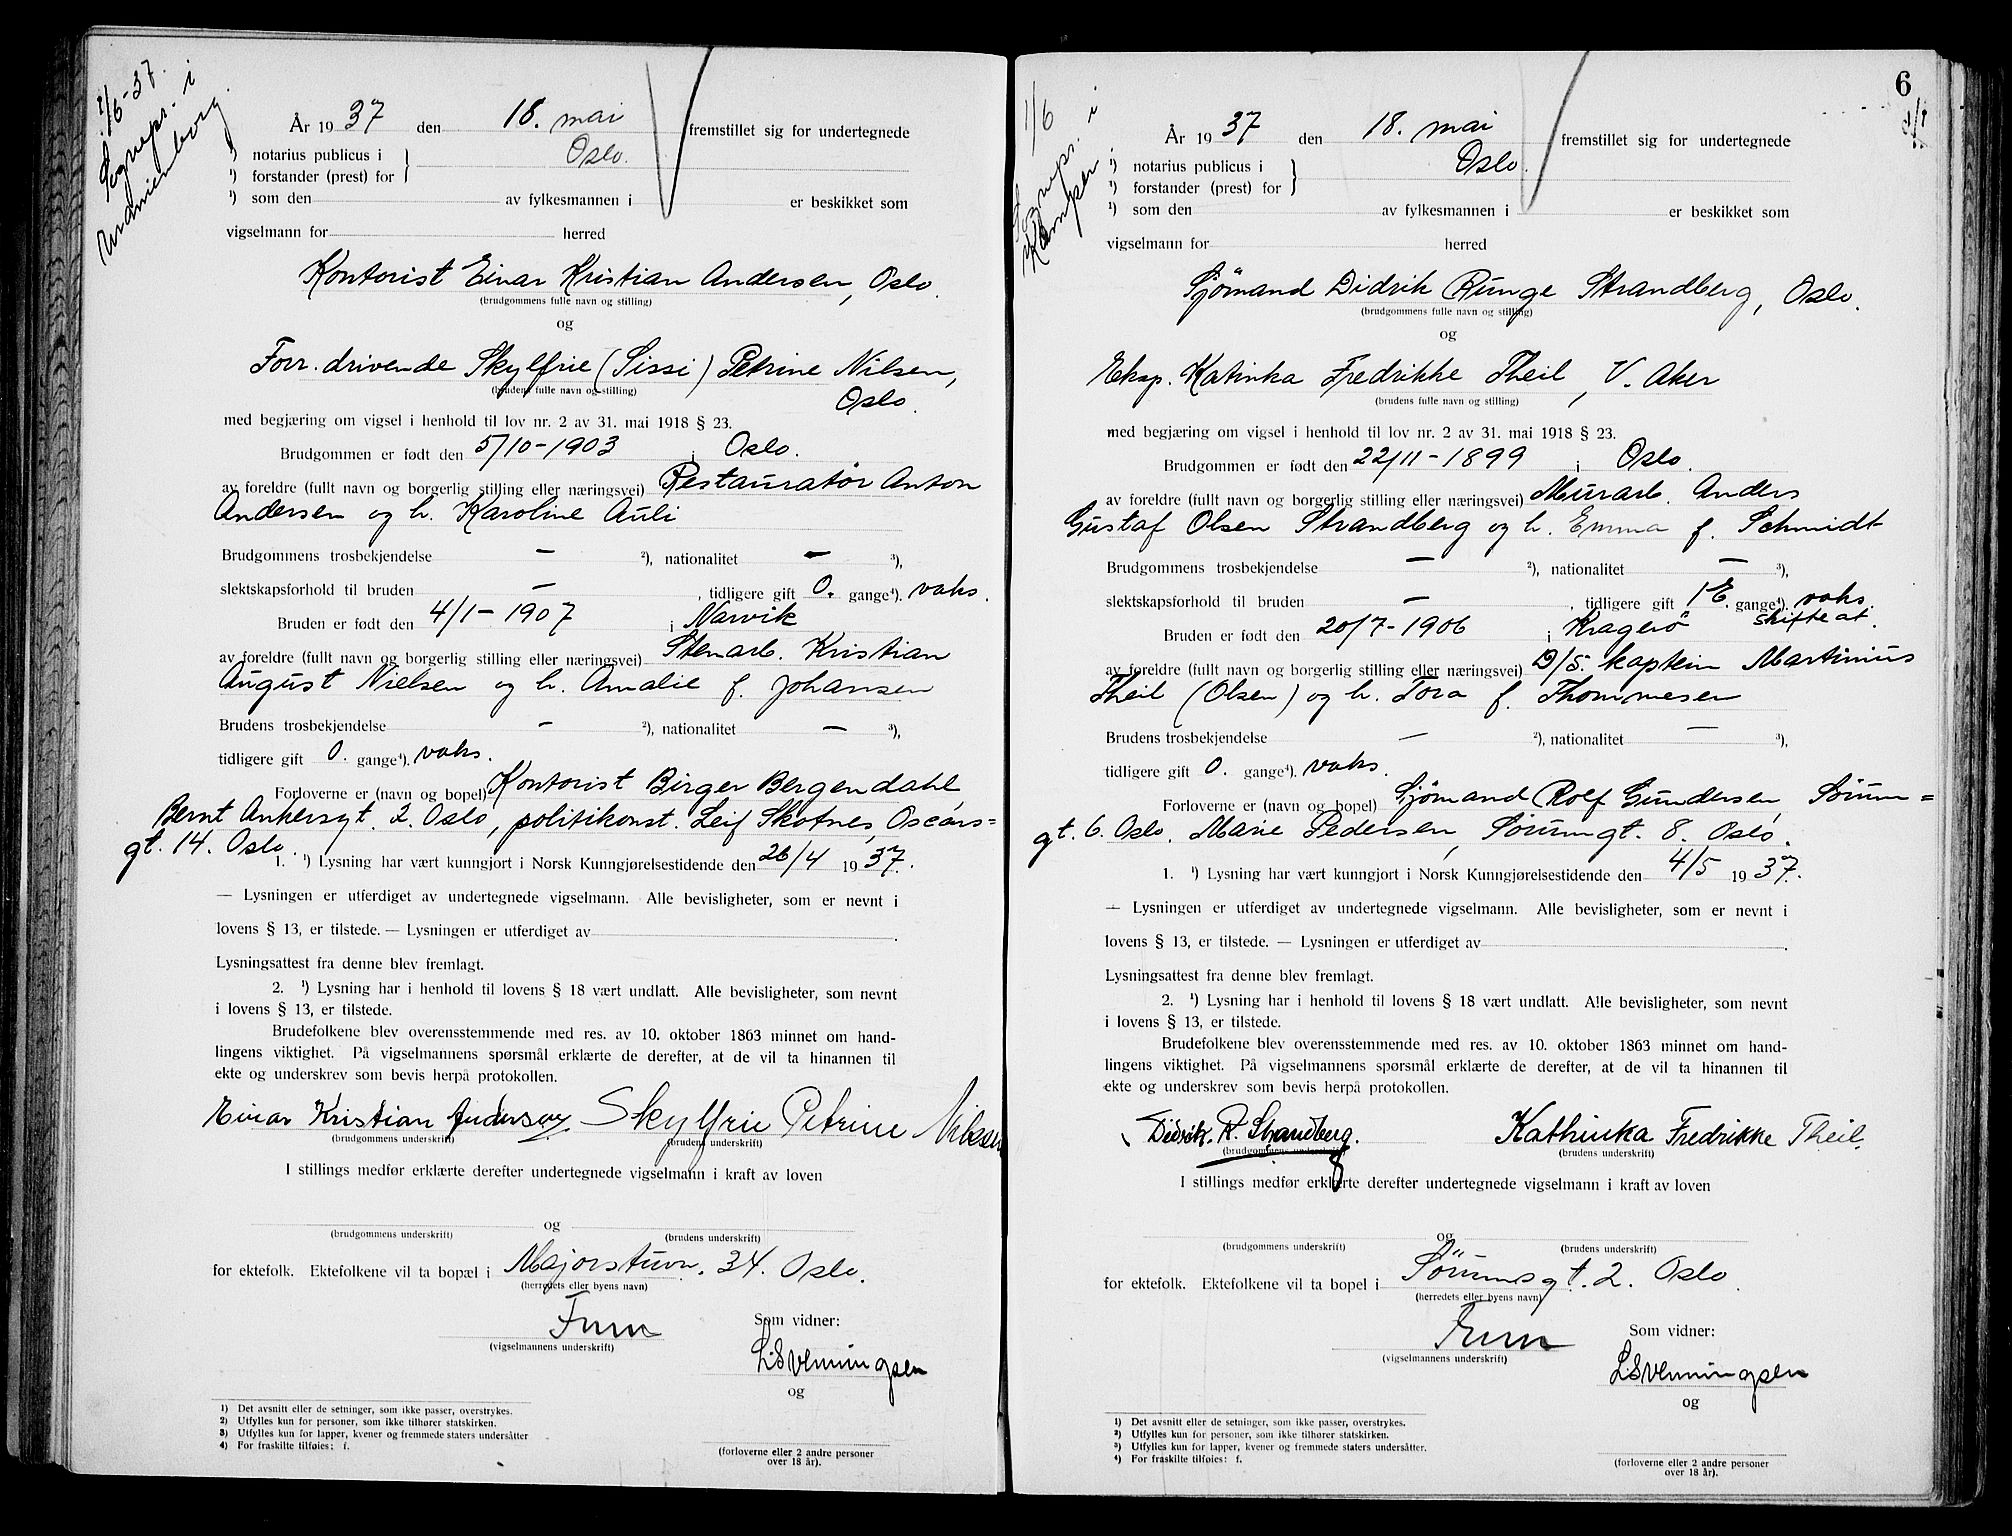 1/6-37.
Sogneps. i
Uranienborg.
År 1937 den 18. mai fremstillet sig for undertegnede
¹) notarius publicus i } Oslo.
¹) forstander (prest) for
¹) som den av fylkesmannen i er beskikket som
vigselmann for herred
Kontorist Einar Kristian Andersen, Oslo.
(brudgommens fulle navn og stilling)
og
Forr. drivende Skylfrie (Sissi) Petrine Nilsen,
(brudens fulle navn og stilling)
Oslo.
med begjæring om vigsel i henhold til lov nr. 2 av 31. mai 1918 § 23.
Brudgommen er født den 5/10-1903 i Oslo.
av foreldre (fullt navn og borgerlig stilling eller næringsvei) Restauratør Anton
Andersen og h. Karoline Auli
Brudgommens trosbekjendelse — ²), nationalitet — ³),
slektskapsforhold til bruden — , tidligere gift 0. gange⁴). vaks.
Bruden er født den 4/1-1907 i Narvik
av foreldre (fullt navn og borgerlig stilling eller næringsvei) Stenarb. Kristian
August Nielsen og h. Amalie f. Johansen
Brudens trosbekjendelse — ²), nationalitet — ³),
tidligere gift 0. gange⁴). vaks.
Forloverne er (navn og bopel) Kontorist Birger Bergendahl
Bernt Ankersgt. 2. Oslo, politikonst. Leif Skotnes, Oscars=
gt. 14. Oslo.
1. ¹) Lysning har vært kunngjort i Norsk Kunngjørelsestidende den 26/4 1937.
— Lysningen er utferdiget av undertegnede vigselmann. Alle bevisligheter, som er nevnt i
lovens § 13, er tilstede. — Lysningen er utferdiget av .
Lysningsattest fra denne blev fremlagt.
2. ¹) Lysning har i henhold til lovens § 18 vært undlatt. Alle bevisligheter, som nevnt
i lovens § 13, er tilstede.
Brudefolkene blev overensstemmende med res. av 10. oktober 1863 minnet om hand-
lingens viktighet. På vigselmannens spørsmål erklærte de derefter, at de vil ta hinannen til
ekte og underskrev som bevis herpå protokollen.
Einar Kristian Andersen Skylfrie Petrine Nilsen
(brudgommens underskrift) (brudens underskrift)
I stillings medfør erklærte derefter undertegnede vigselmann i kraft av loven
og
(brudgommens underskrift) (brudens underskrift)
for ektefolk. Ektefolkene vil ta bopæl i Majorstuvn. 34. Oslo.
(herredets eller byens navn)
(vigselmannens underskrift)
Som vidner:
LSVenningsen
og
(forloverne eller 2 andre personer
over 18 år).
1) Det avsnitt eller de setninger, som ikke passer, overstrykes.
2) Utfylles kun for personer, som ikke tilhører statskirken.
3) Utfylles kun for lapper, kvener og fremmede staters undersåtter
4) For fraskilte tilføies: f.
6
1/6
Sogneps. i
Kampen
År 1937 den 18. mai fremstillet sig for undertegnede
¹) notarius publicus i } Oslo.
¹) forstander (prest) for
¹) som den av fylkesmannen i er beskikket som
vigselmann for herred
Sjömand Didrik Runge Strandberg, Oslo.
(brudgommens fulle navn og stilling)
og
Eksp. Katinka Fredrikke Theil, V. Aker
(brudens fulle navn og stilling)
med begjæring om vigsel i henhold til lov nr. 2 av 31. mai 1918 § 23.
Brudgommen er født den 22/11-1899 i Oslo.
av foreldre (fullt navn og borgerlig stilling eller næringsvei) Murarb. Anders
Gustaf Olsen Strandberg og h. Emma f. Schmidt
Brudgommens trosbekjendelse — ²), nationalitet — ³),
slektskapsforhold til bruden — , tidligere gift 1 E. gange⁴). vaks.
skifte at.
Bruden er født den 20/7-1906 i Kragerö
av foreldre (fullt navn og borgerlig stilling eller næringsvei) D/S. kaptein Martinius
Theil (Olsen) og h. Tora f. Thommesen
Brudens trosbekjendelse — ²), nationalitet — ³),
tidligere gift 0. gange⁴). vaks.
Forloverne er (navn og bopel) Sjömand Rolf Gundersen, Sörum=
gt. 6. Oslo. Marie Pedersen, Sörumgt. 8. Oslo.
1. ¹) Lysning har vært kunngjort i Norsk Kunngjørelsestidende den 4/5 1937.
— Lysningen er utferdiget av undertegnede vigselmann. Alle bevisligheter, som er nevnt i
lovens § 13, er tilstede. — Lysningen er utferdiget av .
Lysningsattest fra denne blev fremlagt.
2. ¹) Lysning har i henhold til lovens § 18 vært undlatt. Alle bevisligheter, som nevnt
i lovens § 13, er tilstede.
Brudefolkene blev overensstemmende med res. av 10. oktober 1863 minnet om hand-
lingens viktighet. På vigselmannens spørsmål erklærte de derefter, at de vil ta hinannen til
ekte og underskrev som bevis herpå protokollen.
Didrik. R. Strandberg. Kathinka Fredrikke Theil.
(brudgommens underskrift) (brudens underskrift)
I stillings medfør erklærte derefter undertegnede vigselmann i kraft av loven
og
(brudgommens underskrift) (brudens underskrift)
for ektefolk. Ektefolkene vil ta bopel i Sörumsgt. 2. Oslo.
(herredets eller byens navn)
(vigselmannens underskrift)
Som vidner:
LSVenningsen
og
(forloverne eller 2 andre personer
over 18 år).
1) Det avsnitt eller de setninger, som ikke passer, overstrykes.
2) Utfylles kun for personer, som ikke tilhører statskirken.
3) Utfylles kun for lapper, kvener og fremmede staters undersåtter.
4) For fraskilte tilføies: f.